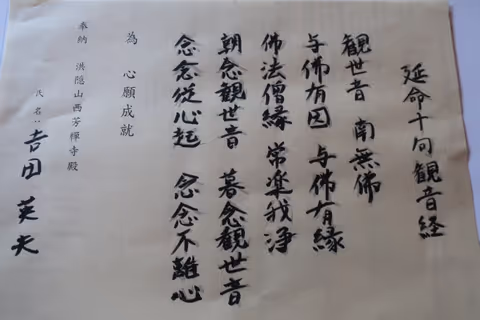 延命十句観音経
観世音 南無佛
与佛有因 与佛有縁
佛法僧縁 常楽我浄
朝念観世音 暮念観世音
念念従心起 念念不離心
為 心願成就
奉納 洪隠山西芳禅寺殿
氏名 吉田 英夫